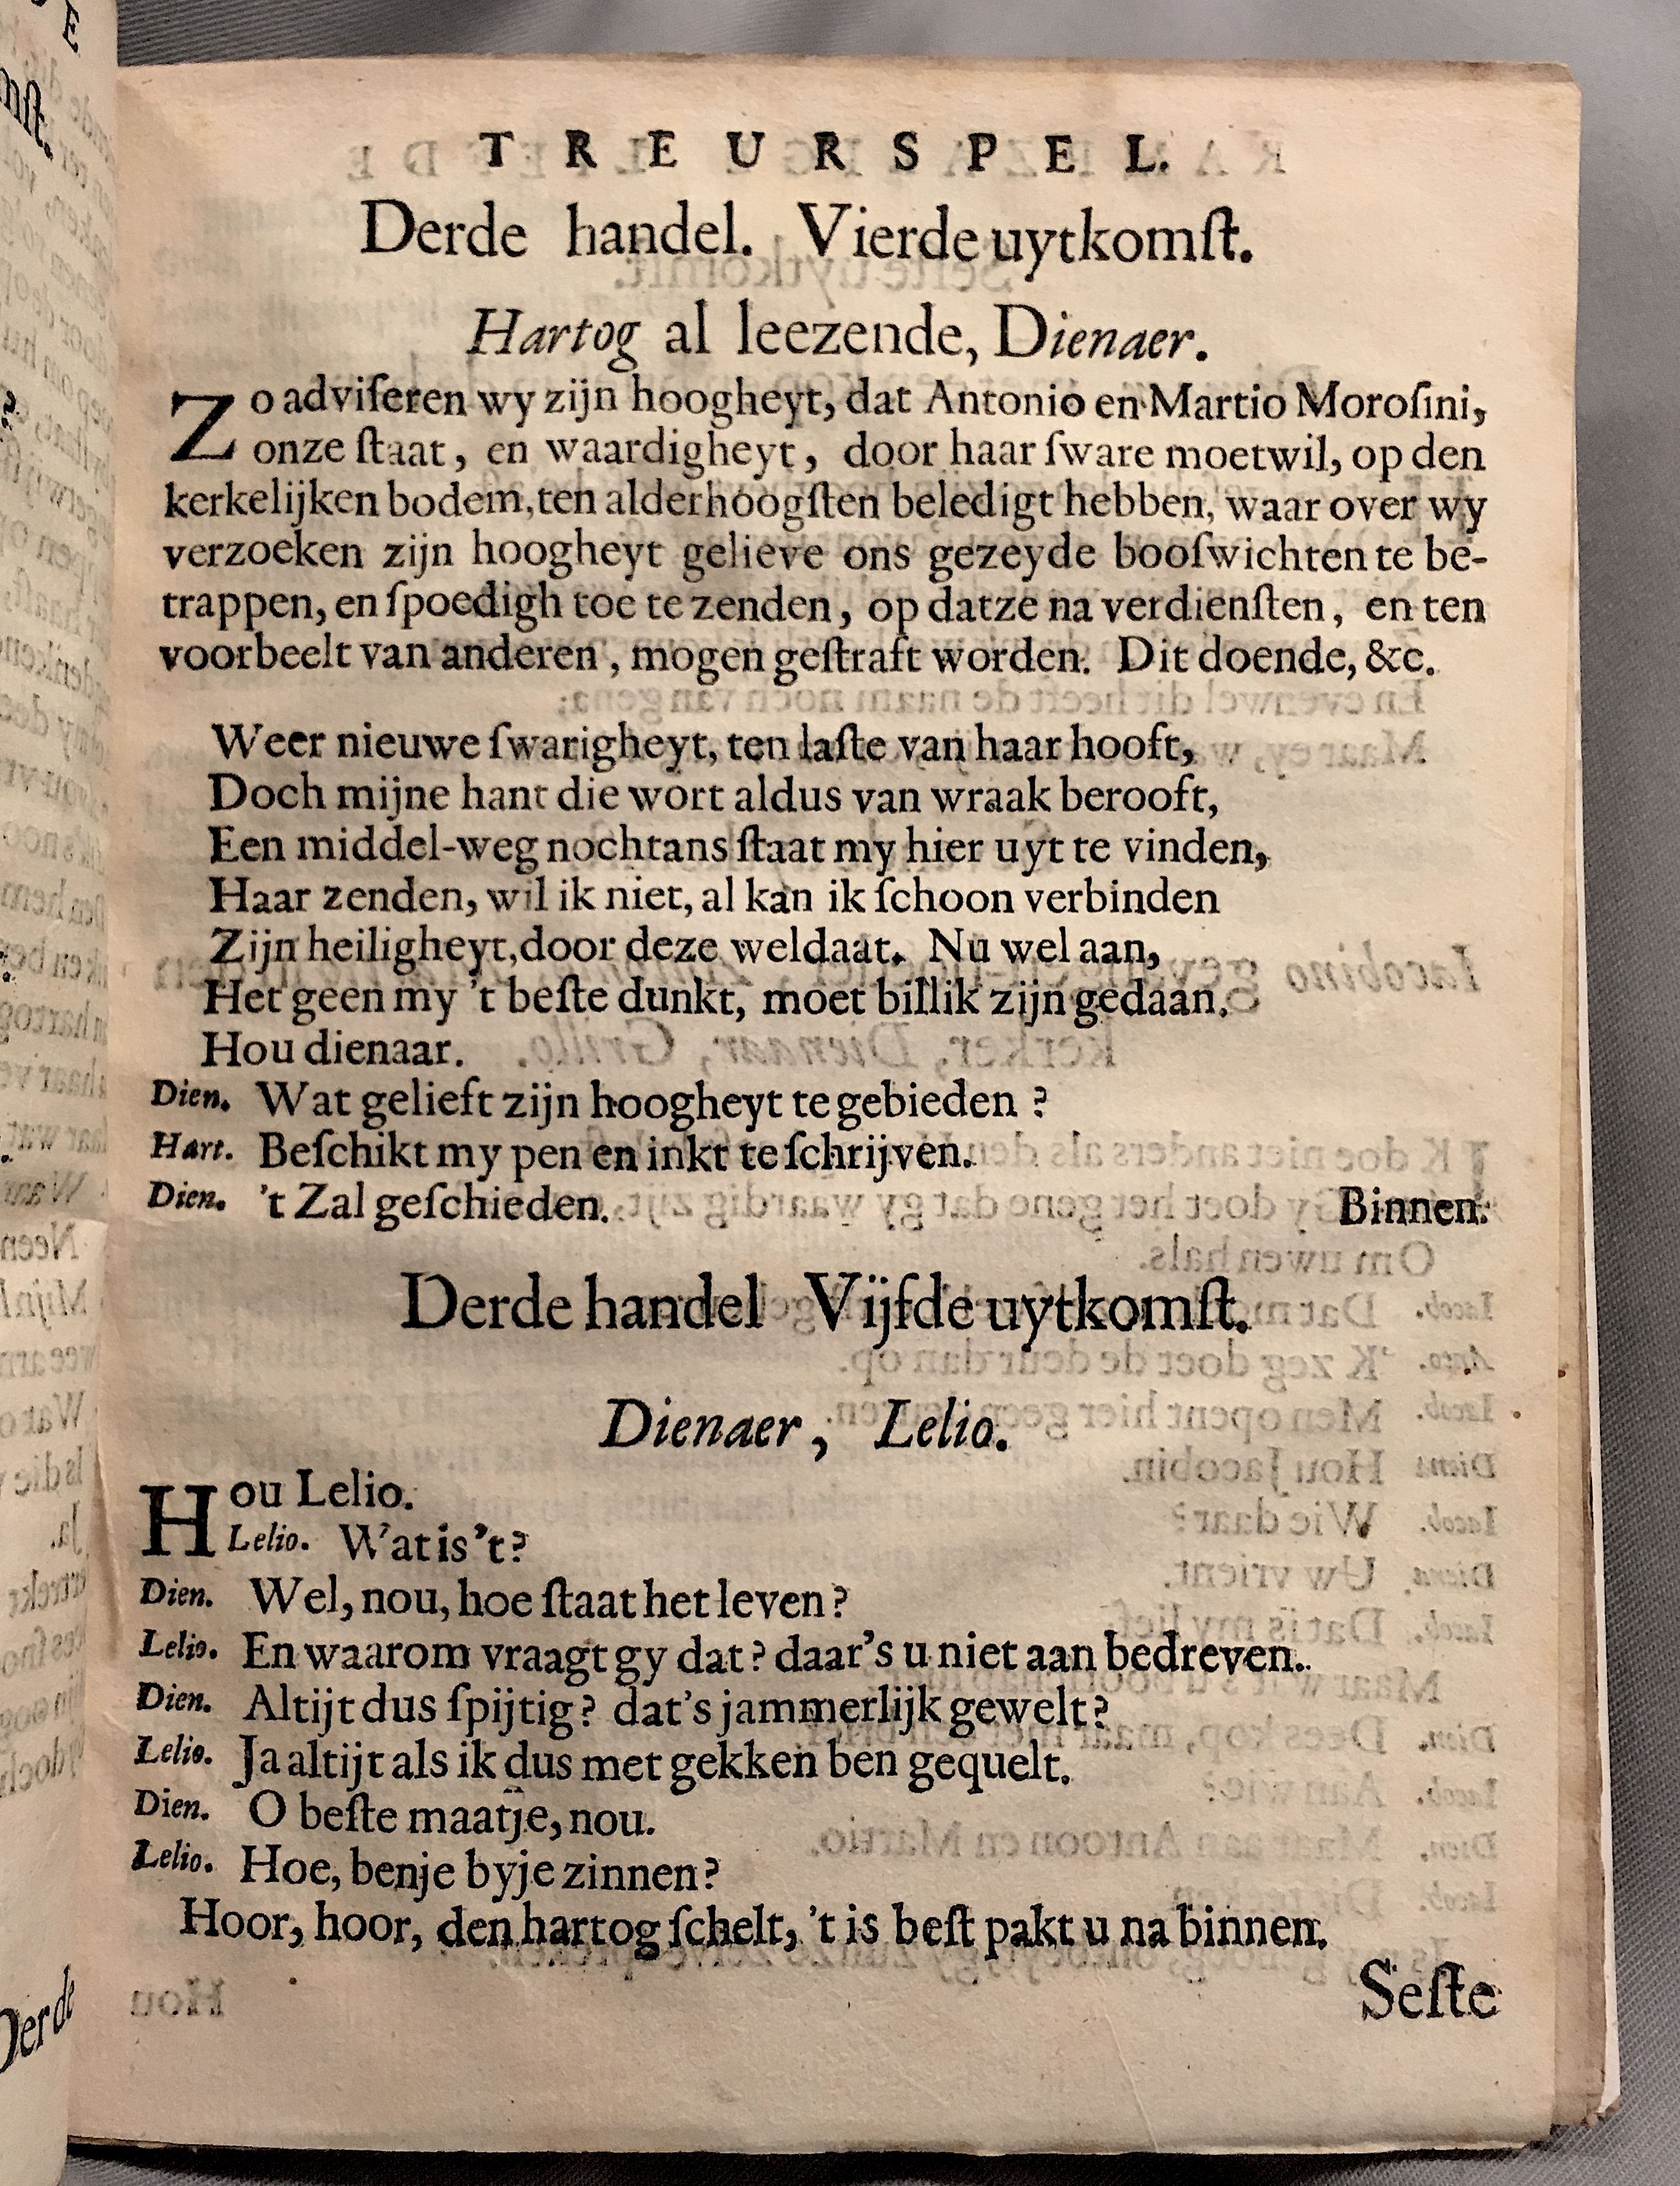 TREURSPEL.
Derde handel. Vierde uytkomſt.
Hartog al leezende, Dienaer.
Zo adviſeren wy zijn hoogheyt, dat Antonio en Martio Moroſini,
onze ſtaat, en waardigheyt, door haar ſware moetwil, op den
kerkelijken bodem, ten alderhoogſten beledigt hebben, waar over wy
verzoeken zijn hoogheyt gelieve ons gezeyde booſwichten te be-
trappen, en ſpoedigh toe te zenden, op datze na verdienſten, en ten
voorbeelt van anderen, mogen geſtraft worden. Dit doende, &c.
Weer nieuwe ſwarigheyt, ten laſte van haar hooft,
Doch mijne hant die wort aldus van wraak berooft,
Een middel-weg nochtans ſtaat my hier uyt te vinden,
Haar zenden, wil ik niet, al kan ik ſchoon verbinden
Zijn heiligheyt, door deze weldaat. Nu wel aan,
Het geen my 't beſte dunkt, moet billik zijn gedaan.
Hou dienaar.
Dien. Wat gelieft zijn hoogheyt te gebieden?
Hart. Beſchikt my pen en inkt te ſchrijven.
Dien. 't Zal geſchieden. Binnen.
Derde handel Vijfde uytkomſt.
Dienaer, Lelio.
Hou Lelio.
Lelio. Wat is 't?
Dien. Wel, nou, hoe ſtaat het leven?
Lelio. En waarom vraagt gy dat? daar's u niet aan bedreven.
Dien. Altijt dus ſpijtig? dat's jammerlijk gewelt?
Lelio. Ja altijt als ik dus met gekken ben gequelt.
Dien. O beſte maatje, nou.
Lelio. Hoe, benje byje zinnen?
Hoor, hoor, den hartog ſchelt, 't is beſt pakt u na binnen.
Seſte